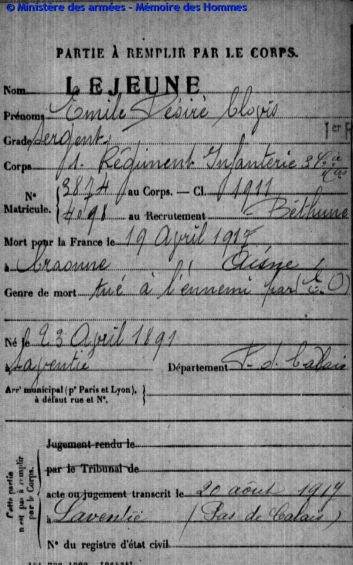 © Ministère des armées - Mémoire des Hommes
PARTIE À REMPLIR PAR LE CORPS.
Nom LEJEUNE
Prénoms Emile Désiré Clovis
Grade Sergent
Corps 1er Régiment Infanterie
N° Matricule. { 3874 au Corps. — Cl. 1911
4098 au Recrutement Béthune
Mort pour la France le 19 Avril 1917
à Craonne Aisne
Genre de mort tué à l'ennemi
Né le 23 Avril 1891
à Laventie Département P. d. Calais
Arrt municipal (pr Paris et Lyon), }
à défaut rue et N°.
Cette partie n'est pas à remplir par le Corps.
Jugement rendu le
par le Tribunal de
acte ou jugement transcrit le 20 août 1917
à Laventie (Pas de Calais)
N° du registre d'état civil